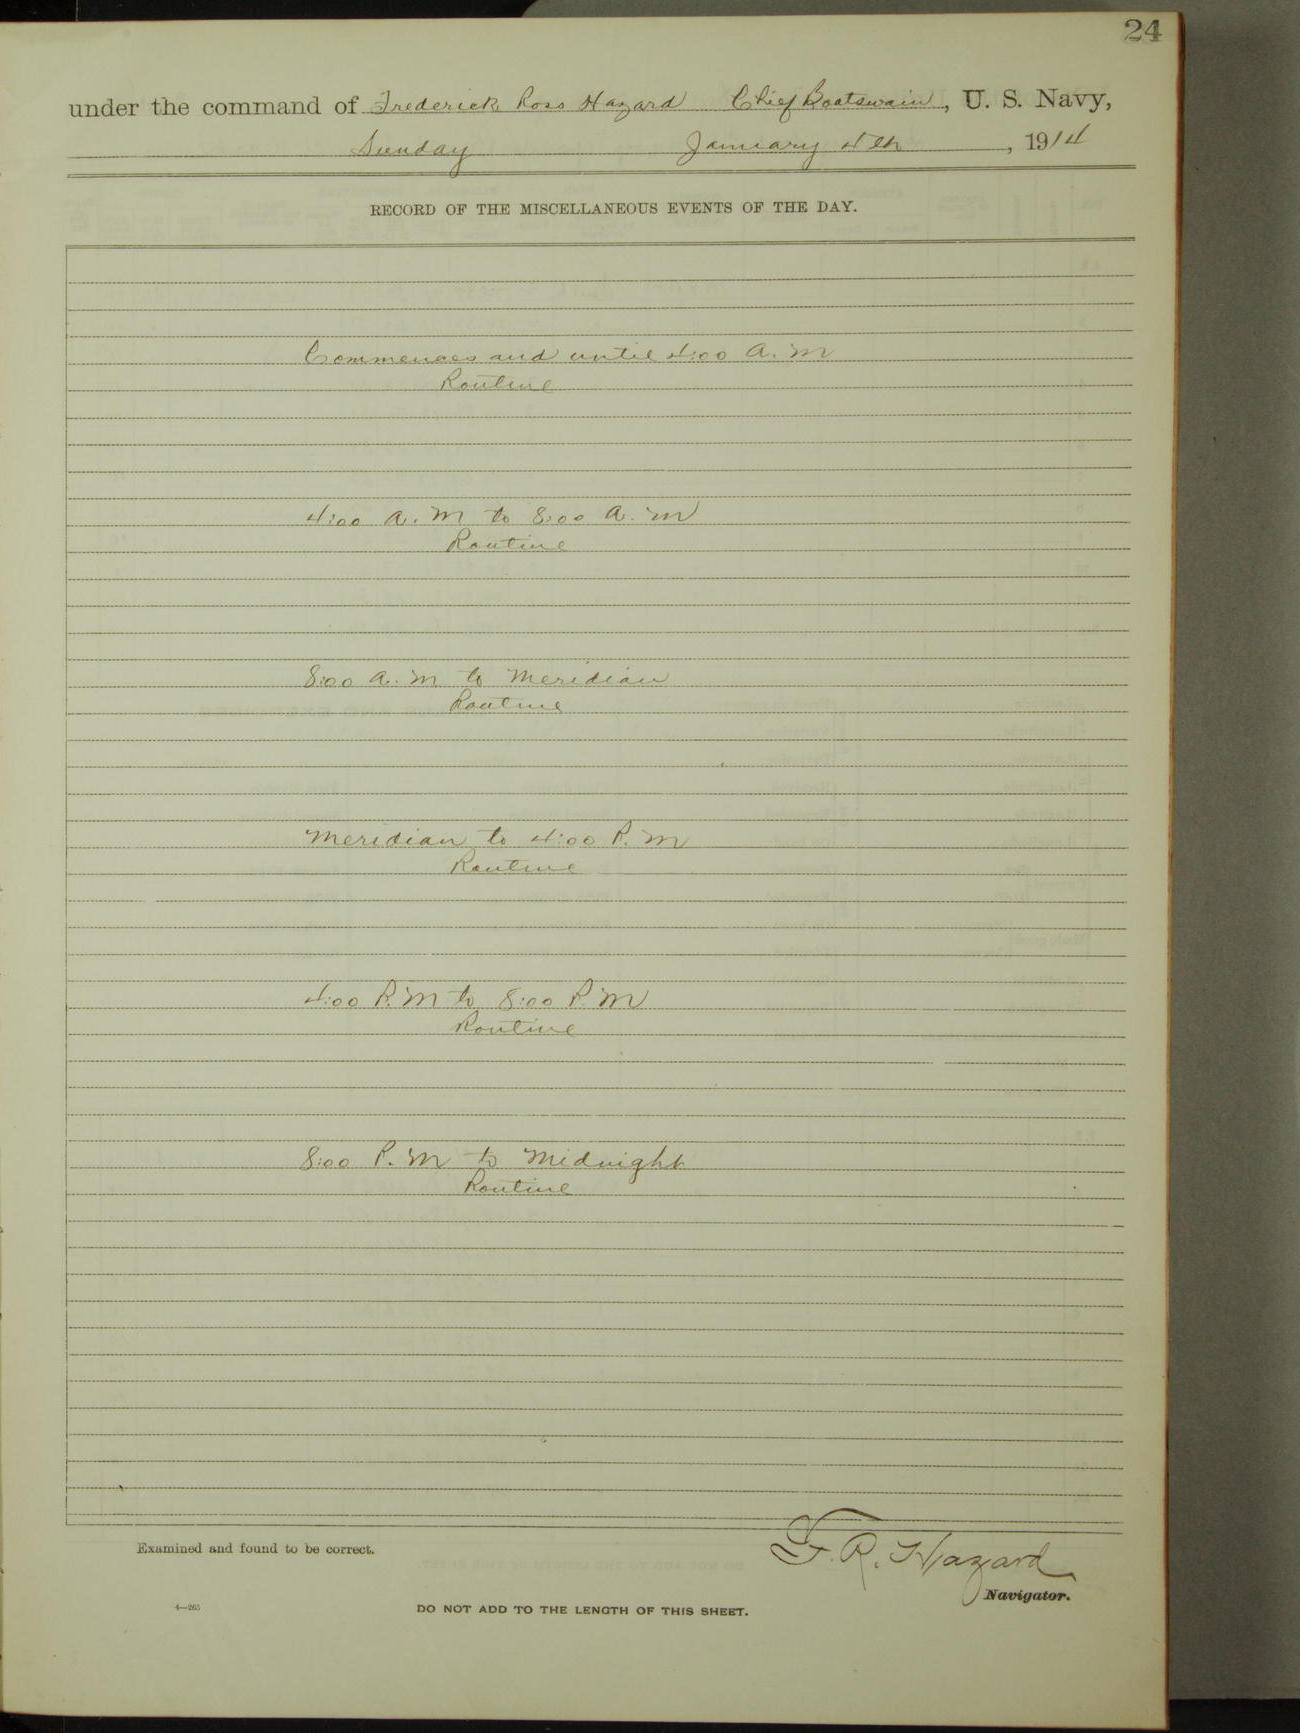 24
under the command of Frederick Ross Hazard Chief Boatswain, U. S. Navy,
Sunday January 4th, 1914
RECORD OF THE MISCELLANEOUS EVENTS OF THE DAY.
Commences and until 4:00 A.M
Routine
4:00 A.M to 8:00 A.M
Routine
8:00 A.M to Meridian
Routine
Meridian to 4:00 P.M
Routine
4:00 P.M to 8:00 P.M
Routine
8:00 P.M to Midnight
Routine
Examined and found to be correct.
F. R. Hazard
Navigator.
4—265
DO NOT ADD TO THE LENGTH OF THIS SHEET.